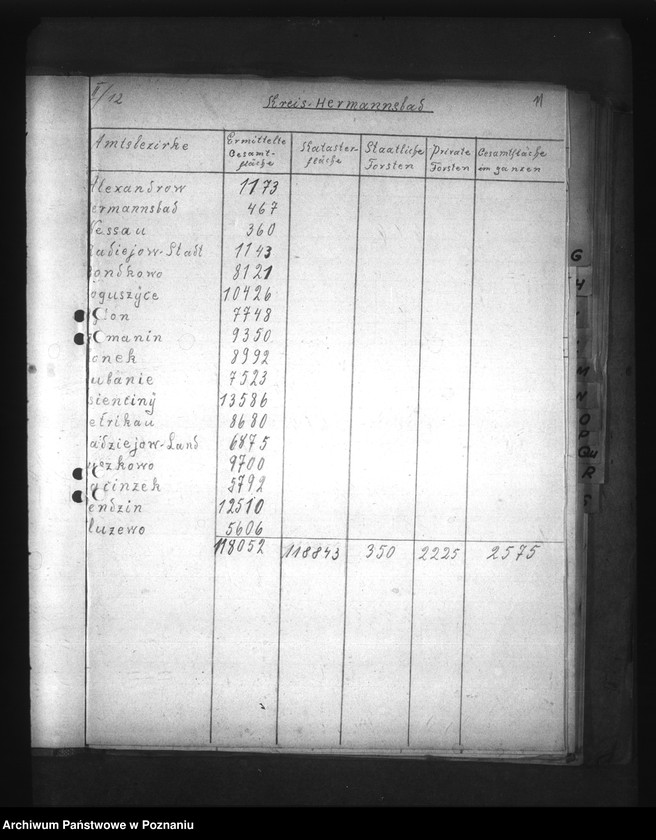 I/12 Kreis-Hermannsbad 11
Amtsbezirke Ermittelte Gesamtfläche Katasterfläche Staatliche Forsten Private Forsten Gesamtfläche im ganzen
Alexandrow 1173
ermannsbad 467
essau 360
adiejow-Stadt 1143
ondkowo 8121
oguszyce 10426
lon 7748
manin 9350
onek 8992
ubanie 7523
sientiny 13586
etrikau 8680
adziejow-Land 6875
zkowo 9700
cinzek 5792
endzin 12510
luzewo 5606
118052 118843 350 2225 2575
G
H
M
N
O
P
Q
R
Archiwum Państwowe w Poznaniu